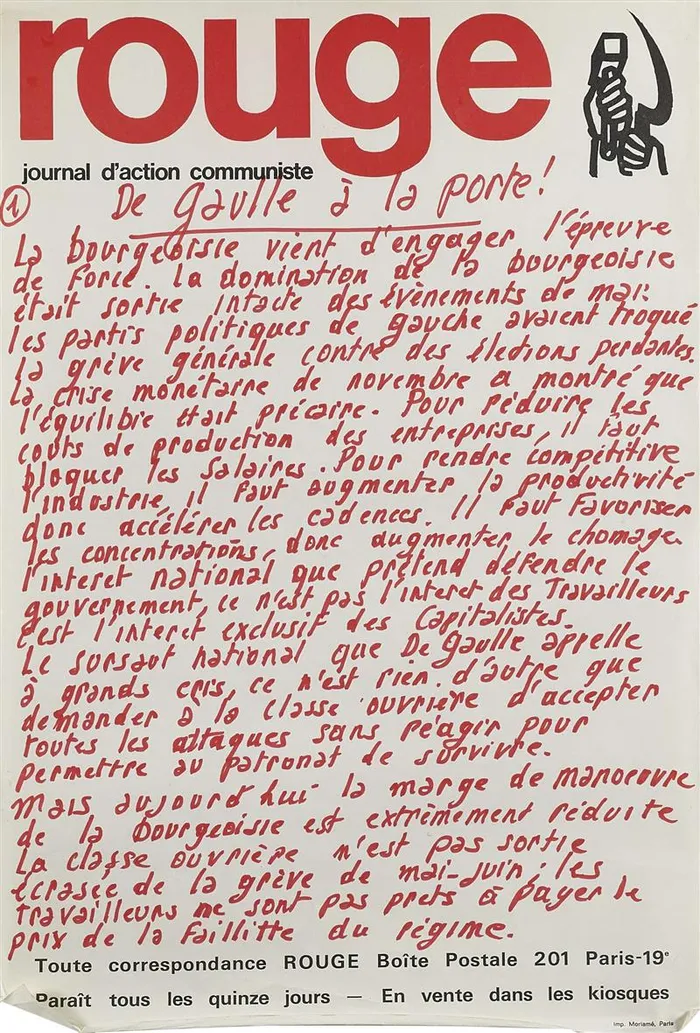 rouge
journal d'action communiste
1 De Gaulle à la porte!
La bourgeoisie vient d'engager l'épreuve
de force. La domination de la bourgeoisie
était sortie intacte des évènements de mai:
les partis politiques de gauche avaient troqué
la grève générale contre des élections perdantes.
La crise monétaire de novembre a montré que
l'équilibre était précaire. Pour réduire les
coûts de production des entreprises, il faut
bloquer les salaires. Pour rendre compétitive
l'industrie, il faut augmenter la productivité
donc accélérer les cadences. Il faut favoriser
les concentrations, donc augmenter le chomage.
l'interet national que prétend défendre le
gouvernement, ce n'est pas l'interet des Travailleurs
c'est l'interet exclusif des Capitalistes.
Le sursaut national que De Gaulle appelle
à grands cris, ce n'est rien d'autre que
demander à la classe ouvriere d'accepter
toutes les attaques sans réagir pour
permettre au patronat de survivre.
Mais aujourd'hui la marge de manoeuvre
de la bourgeoisie est extrèmement réduite
La classe ouvrière n'est pas sortie
écrasée de la grève de mai-juin; les
travailleurs ne sont pas prets à payer le
prix de la faillitte du régime.
Toute correspondance ROUGE Boîte Postale 201 Paris-19e
Paraît tous les quinze jours — En vente dans les kiosques
Imp. Moriamé, Paris